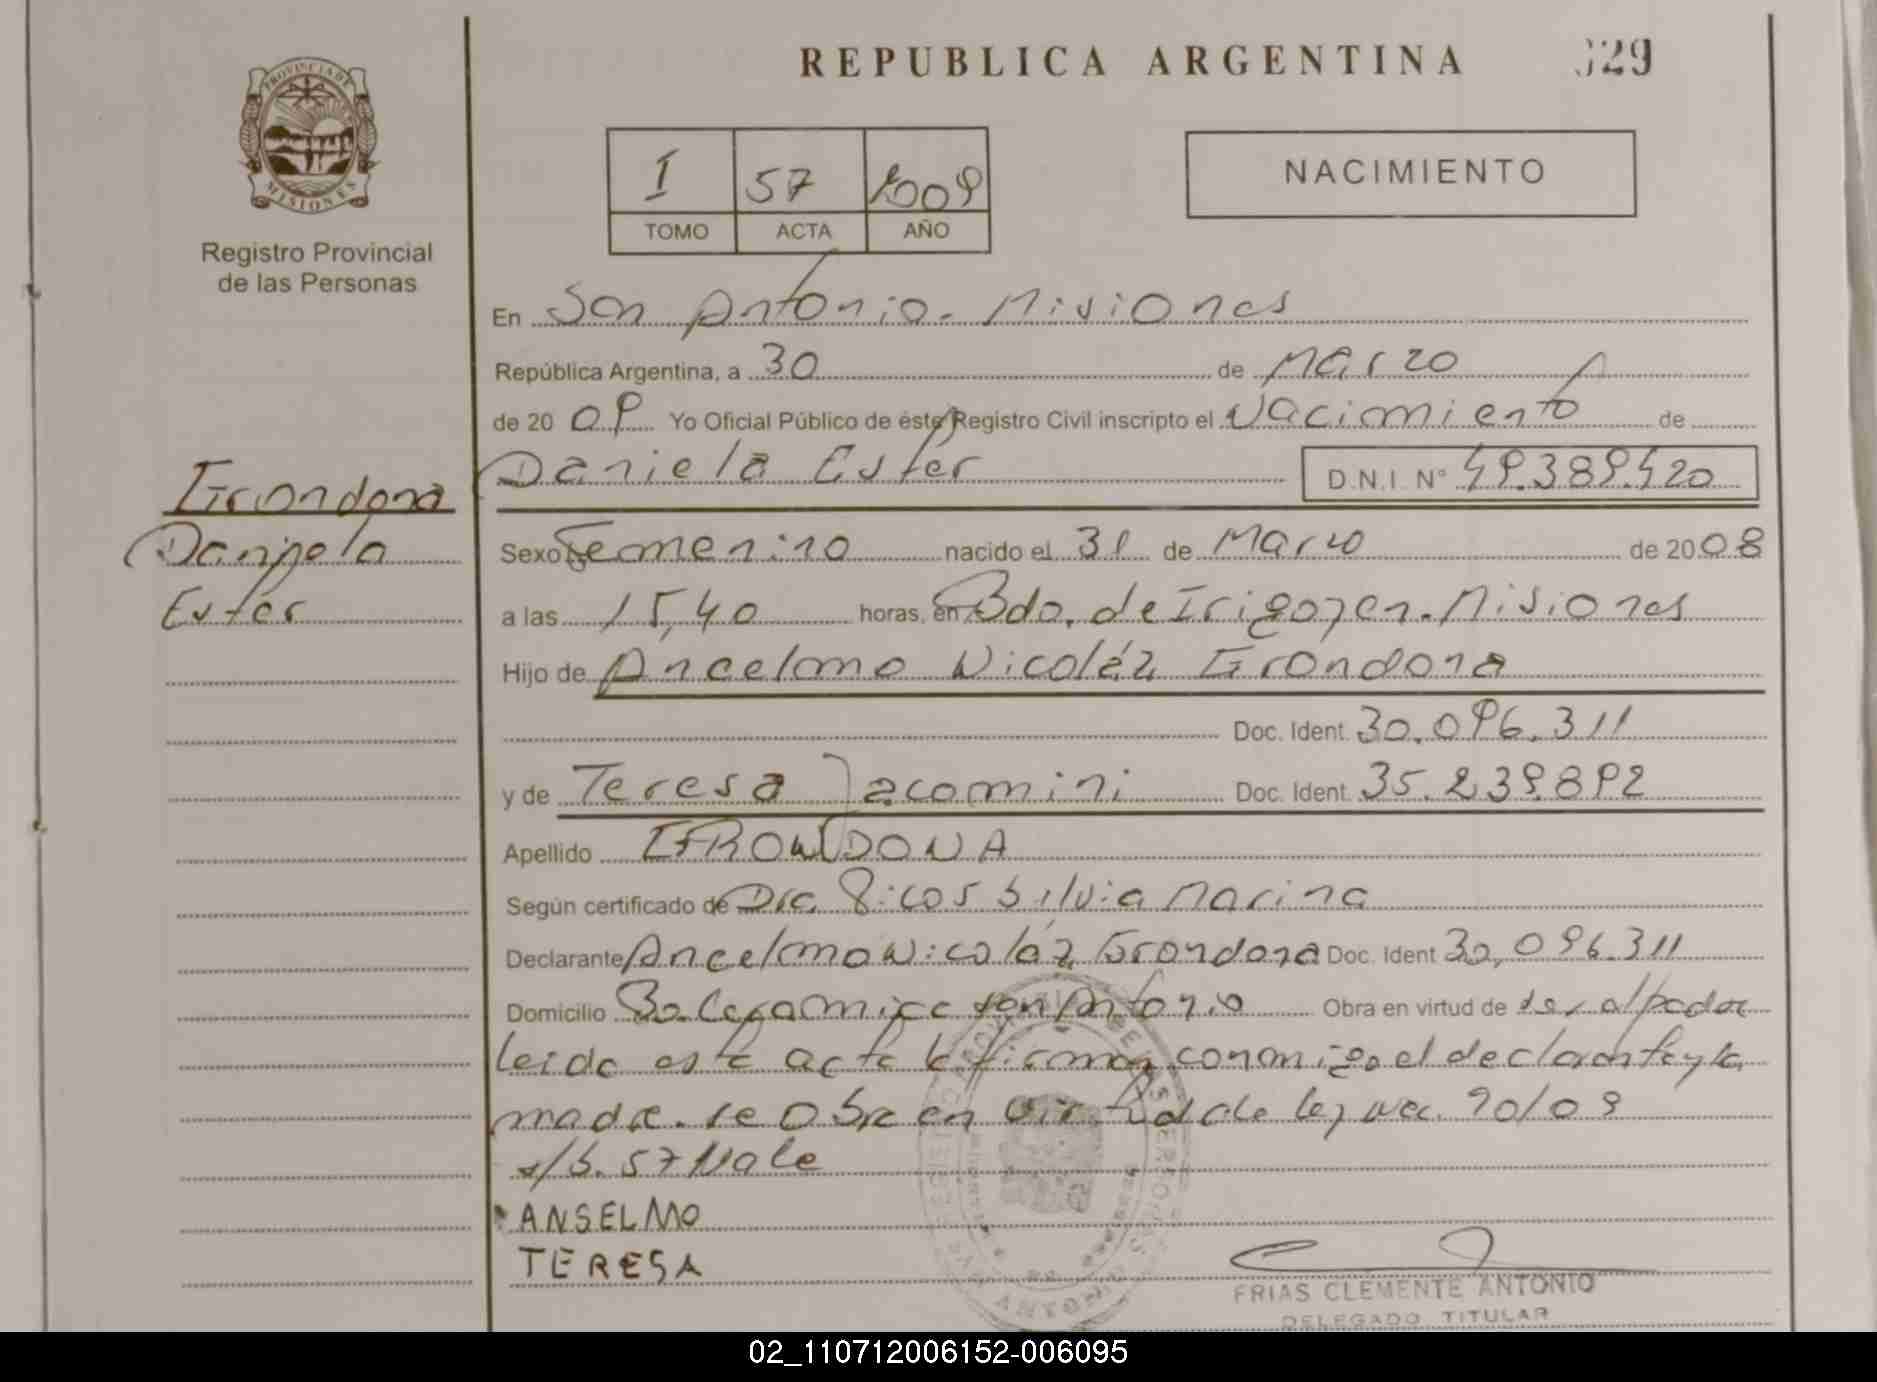 REPUBLICA ARGENTINA 329
PROVINCIA DE MISIONES
Registro Provincial
de las Personas
I 57 2009
TOMO ACTA AÑO
NACIMIENTO
En San Antonio. Misiones
República Argentina, a 30 de Marzo
de 20 09 Yo Oficial Público de éste Registro Civil inscripto el Nacimiento de
Daniela Ester D.N.I. Nº 49.389.420
Grondona
Daniela
Ester
Sexo Femenino nacido el 31 de Marzo de 20 08
a las 15,40 horas, en Bdo. de Irigoyen. Misiones
Hijo de Ancelmo Nicoláz Grondona
Doc. Ident. 30.096.311
y de Teresa Jacomini Doc. Ident. 35.239.892
Apellido GRONDONA
Según certificado de Dra Silvia Marina
Declarante Ancelmo Nicoláz Grondona Doc. Ident 30.096.311
Domicilio San Antonio Obra en virtud de
leida esta acta la firman conmigo el declarante y la
madre. se obra en virtud de ley 90/09
57 Vale
ANSELMO
TERESA
FRIAS CLEMENTE ANTONIO
DELEGADO TITULAR
02_110712006152-006095